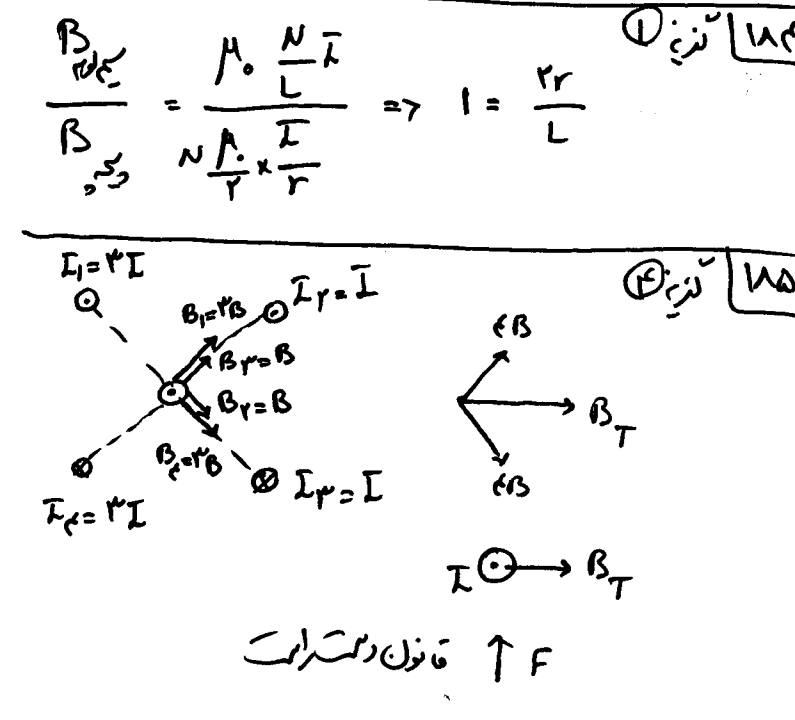 ۱۸۴ گزینه ۱
B سیملوله / B پیچه = μ₀ N/L I / N μ₀/۲ × I/r => ۱ = ۲r/L
۱۸۵ گزینه ۴
I₁=۳I
I۲=I
B₁=۳B
B۳=B
B۲=B
B۴=۳B
I۴=۳I
I۳=I
۴B
B_T
۴B
I B_T
قانون دست راست ↑ F